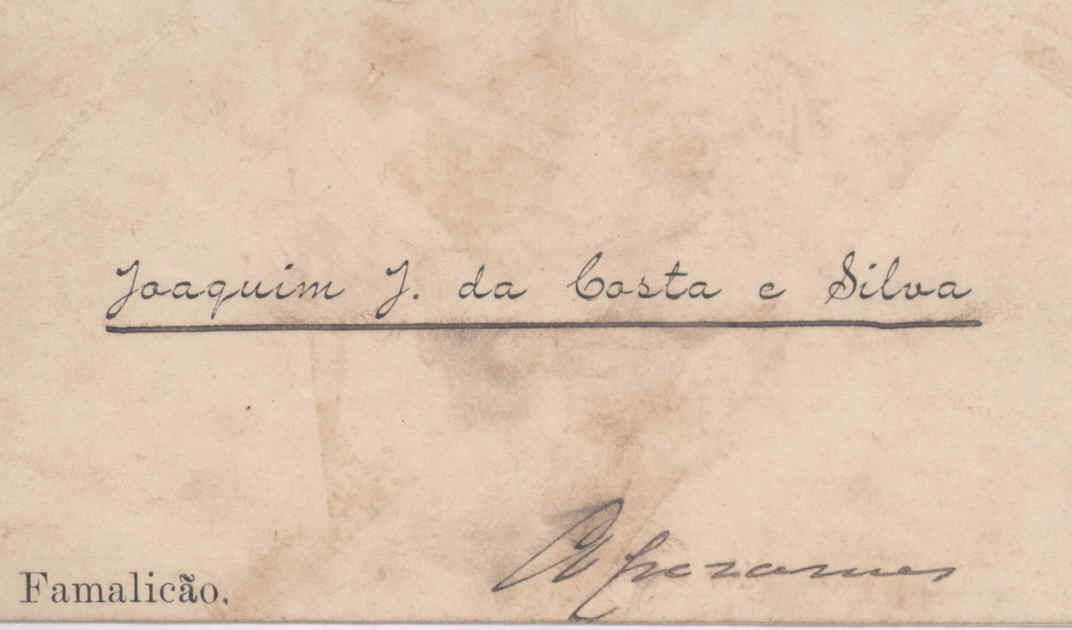 Joaquim J. da Costa e Silva
Famalicão.